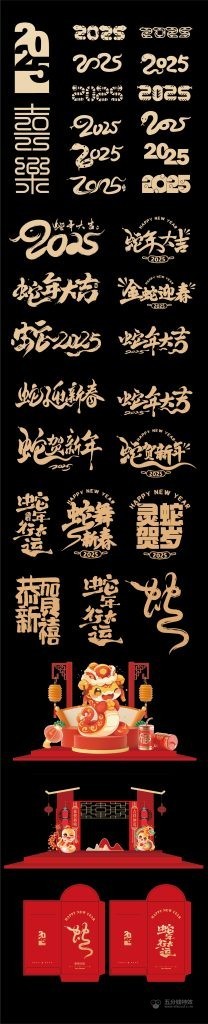 2025
2025
2025
2025
2025
2025
2025
2025
2025
2025
2025
2025
2025
蛇年大吉
2025
HAPPY NEW YEAR
蛇年大吉
2025
蛇年大吉
金蛇迎春
2025
蛇2025
蛇年大吉
蛇迎新春
蛇年大吉
2025
蛇贺新年
2025
HAPPY NEW YEAR
蛇贺新年
2025
蛇年行大运
HAPPY NEW YEAR
蛇舞新春
2025
HAPPY NEW YEAR
灵蛇贺岁
2025
恭贺新禧
蛇年行大运
蛇
2025
HAPPY NEW YEAR
蛇
2025
HAPPY NEW YEAR
蛇年行大运